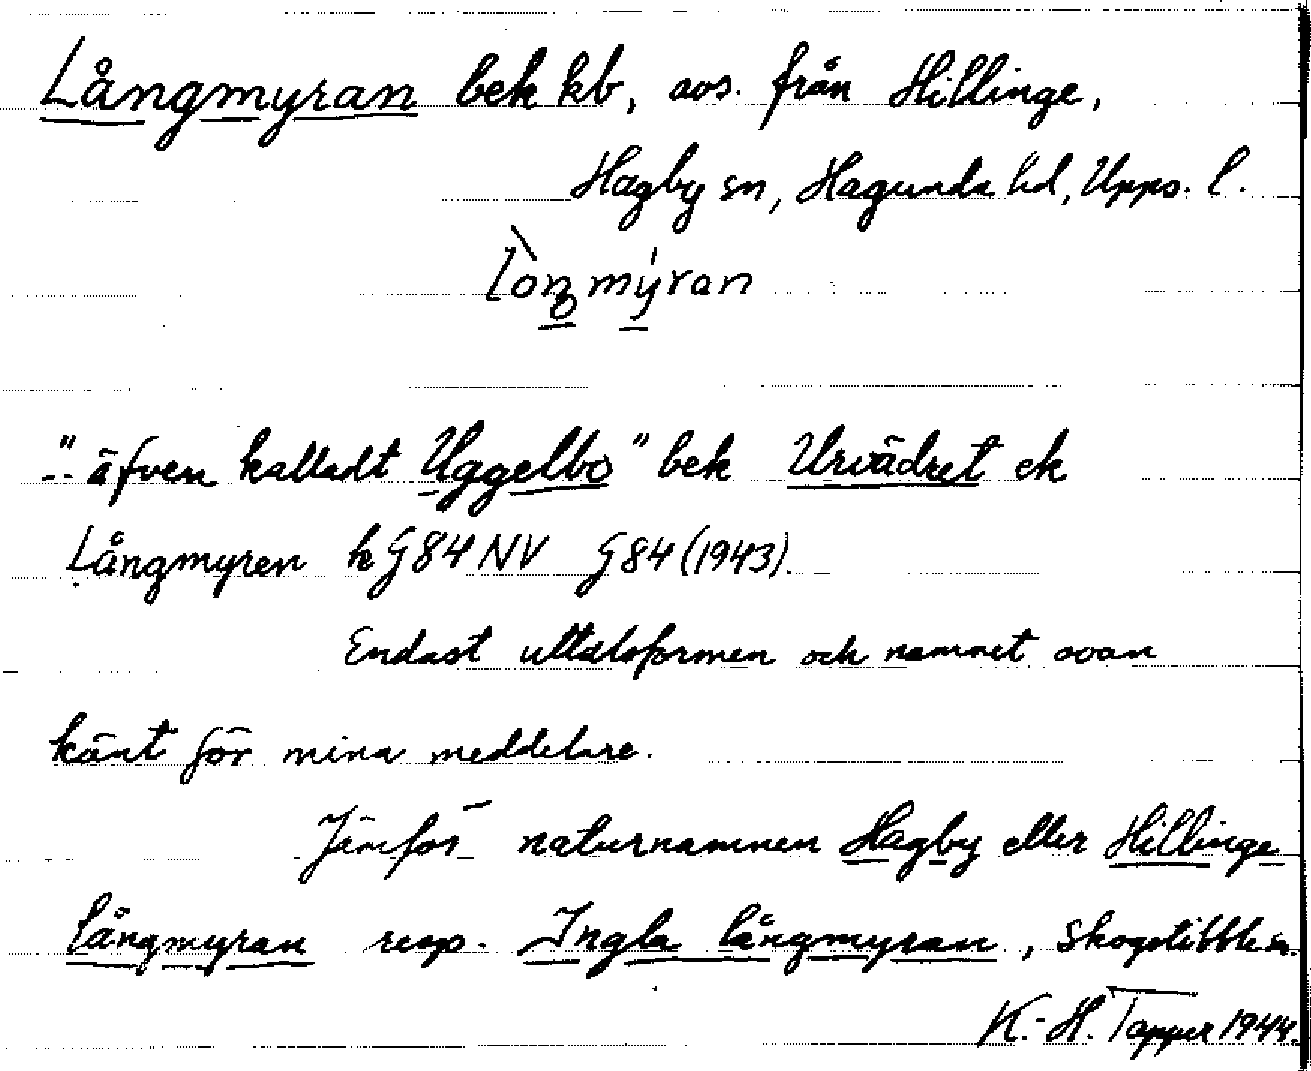 Långmyran bek kb, avs. från Hillinge,
Hagby sn, Hagunda hd, Upps. l.
"- äfven kalladt Uggelbo" bek Urvädret ek
Långmyren h G84 NV G84 (1943).
Endast uttalsformen och namnet ovan
känt för mina meddelare.
Jämför naturnamnen Hagby eller Hillinge
långmyran resp. Ingla långmyran, Skogstibble sn.
K.-H. Tapper 1944.